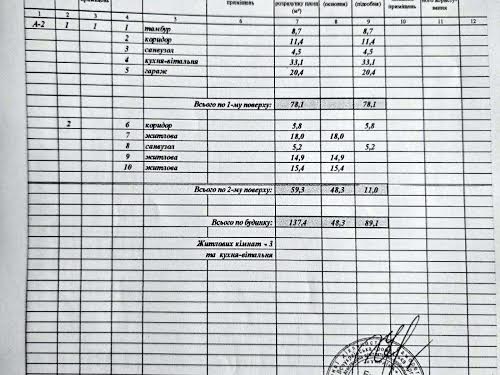 приміщень приміщень розрахунку площі
(м²) (основна) (підсобна) приміщень ного користу-
вання
1 2 3 4 5 6 7 8 9 10 11 12
А-2 1 1 1 тамбур 8,7 8,7
2 коридор 11,4 11,4
3 санвузол 4,5 4,5
4 кухня-вітальня 33,1 33,1
5 гараж 20,4 20,4
Всього по 1-му поверху: 78,1 78,1
2 6 коридор 5,8 5,8
7 житлова 18,0 18,0
8 санвузол 5,2 5,2
9 житлова 14,9 14,9
10 житлова 15,4 15,4
Всього по 2-му поверху: 59,3 48,3 11,0
Всього по будинку: 137,4 48,3 89,1
Житлових кімнат - 3
та кухня-вітальня